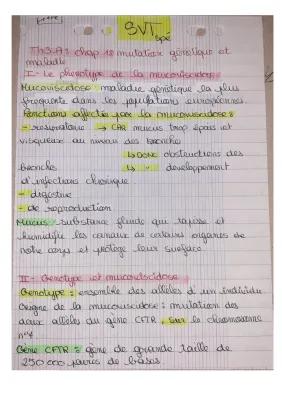 SVT
spé
Th3.A1 chap 18 mutation génétique et
maladie
I - Le phénotype de la mucoviscidose
Mucoviscidose : maladie génétique la plus
fréquente dans les populations européennes.
Fonctions affectées par la mucoviscidose :
- respiratoire → CAR mucus trop épais et
visqueux au niveau des bronches
↳ DONC obstructions des
bronches ↳ " développement
d'infections chronique
- digestive
- de reproduction
Mucus : substance fluide qui tapisse et
humidifie les canaux de certains organes de
notre corps et protège leur surface.
II - Génotype et mucoviscidose
Génotype : ensemble des allèles d'un individu
Origine de la mucoviscidose : mutation des
deux allèles du gène CFTR, sur le chromosome
n°7
Gène CFTR : gène de grande taille de
250 000 paires de bases.